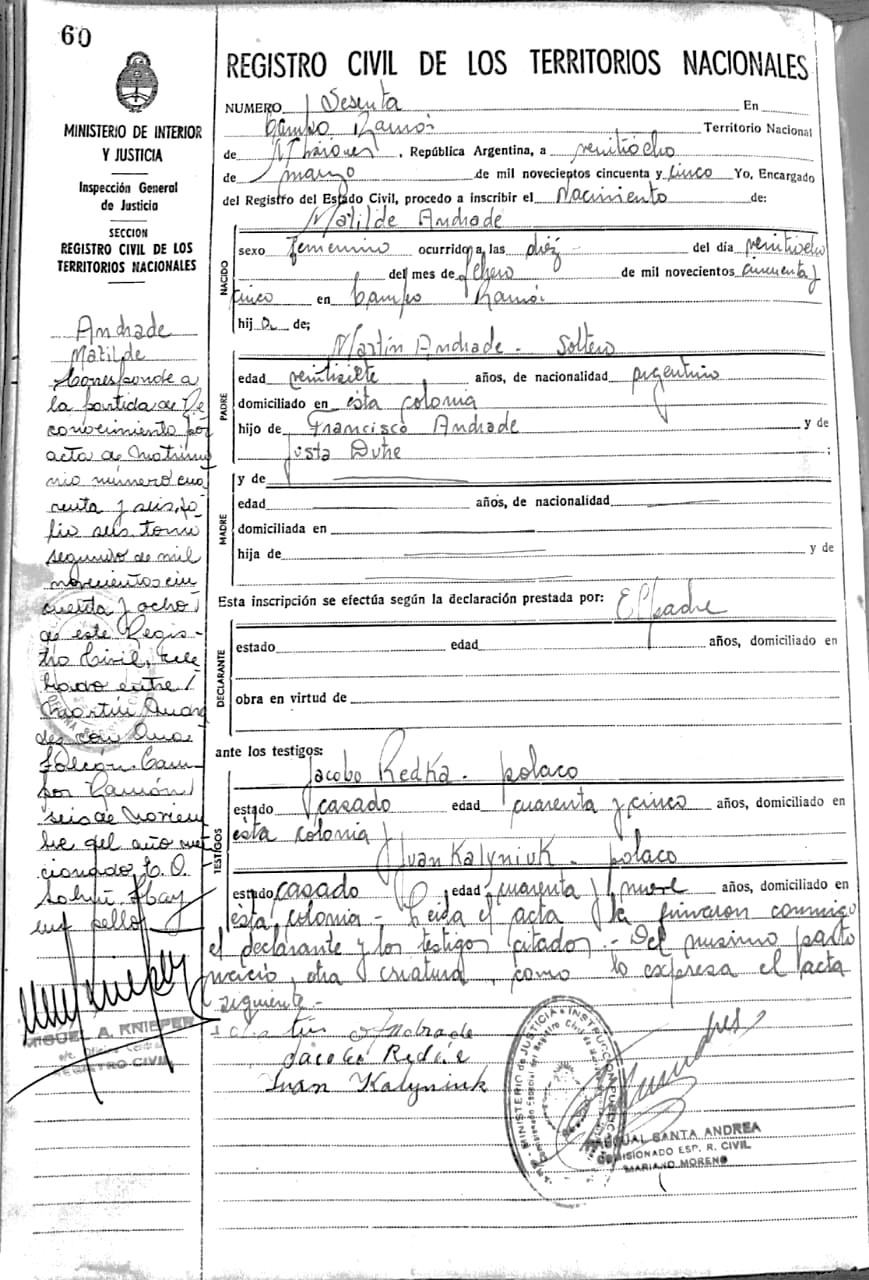 60
REGISTRO CIVIL DE LOS TERRITORIOS NACIONALES
MINISTERIO DE INTERIOR
Y JUSTICIA
Inspección General
de Justicia
SECCION
REGISTRO CIVIL DE LOS
TERRITORIOS NACIONALES
Andrade
Matilde
Corresponde a
la partida de Re
conocimiento por
acta de Matrimo
nio número cua
renta y seis, fo
lio seis, tomo
segundo de mil
novecientos cin
cuenta y ocho
de este Regis-
tro Civil, cele
brado entre
Martín Andra
de con Ana
Falcón. Cam-
po Ramón
seis de Noviem
bre del año men
cionado
MIGUEL A. KNIEPER
REGISTRO CIVIL
NUMERO Sesenta En
Campo Ramón Territorio Nacional
de Misiones, República Argentina, a veintiocho
de marzo de mil novecientos cincuenta y cinco Yo, Encargado
del Registro del Estado Civil, procedo a inscribir el Nacimiento de:
Matilde Andrade
NACIDO
sexo femenino ocurrido a las diez del día veintiocho
del mes de de mil novecientos cincuenta y
cinco en Campo Ramón
hija de;
Martín Andrade - Soltero
PADRE
edad veintisiete años, de nacionalidad argentino
domiciliado en esta colonia
hijo de Francisco Andrade y de
Justa ;
MADRE
y de
edad años, de nacionalidad
domiciliada en
hija de y de
Esta inscripción se efectúa según la declaración prestada por: El padre
DECLARANTE
estado edad años, domiciliado en
obra en virtud de
ante los testigos:
TESTIGOS
Jacobo Redka - polaco
estado casado edad cuarenta y cinco años, domiciliado en
esta colonia y
Juan Kalyniuk - polaco
estado casado edad cuarenta y nueve años, domiciliado en
esta colonia - Leida el acta la firmaron conmigo
el declarante y los testigos citados.- Del mismo parto
nació otra criatura, como lo expresa el acta
siguiente.-
Martin Andrade
Jacobo Redka
Juan Kalyniuk
MINISTERIO de JUSTICIA e INSTRUCCION PUBLICA
PASCUAL SANTA ANDREA
COMISIONADO ESP. R. CIVIL
MARIANO MORENO